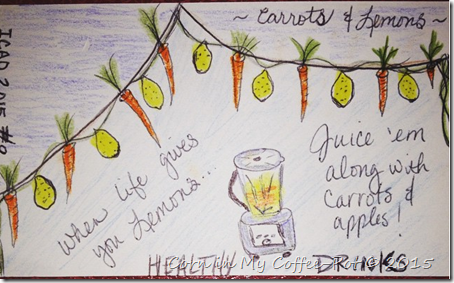 ~ Carrots & Lemons ~
ICAD 2015 #9
When life gives
you Lemons...
Juice 'em
along with
carrots &
apples!
HEALTHY DRINKS
Corn in My Coffee Pot © 2015